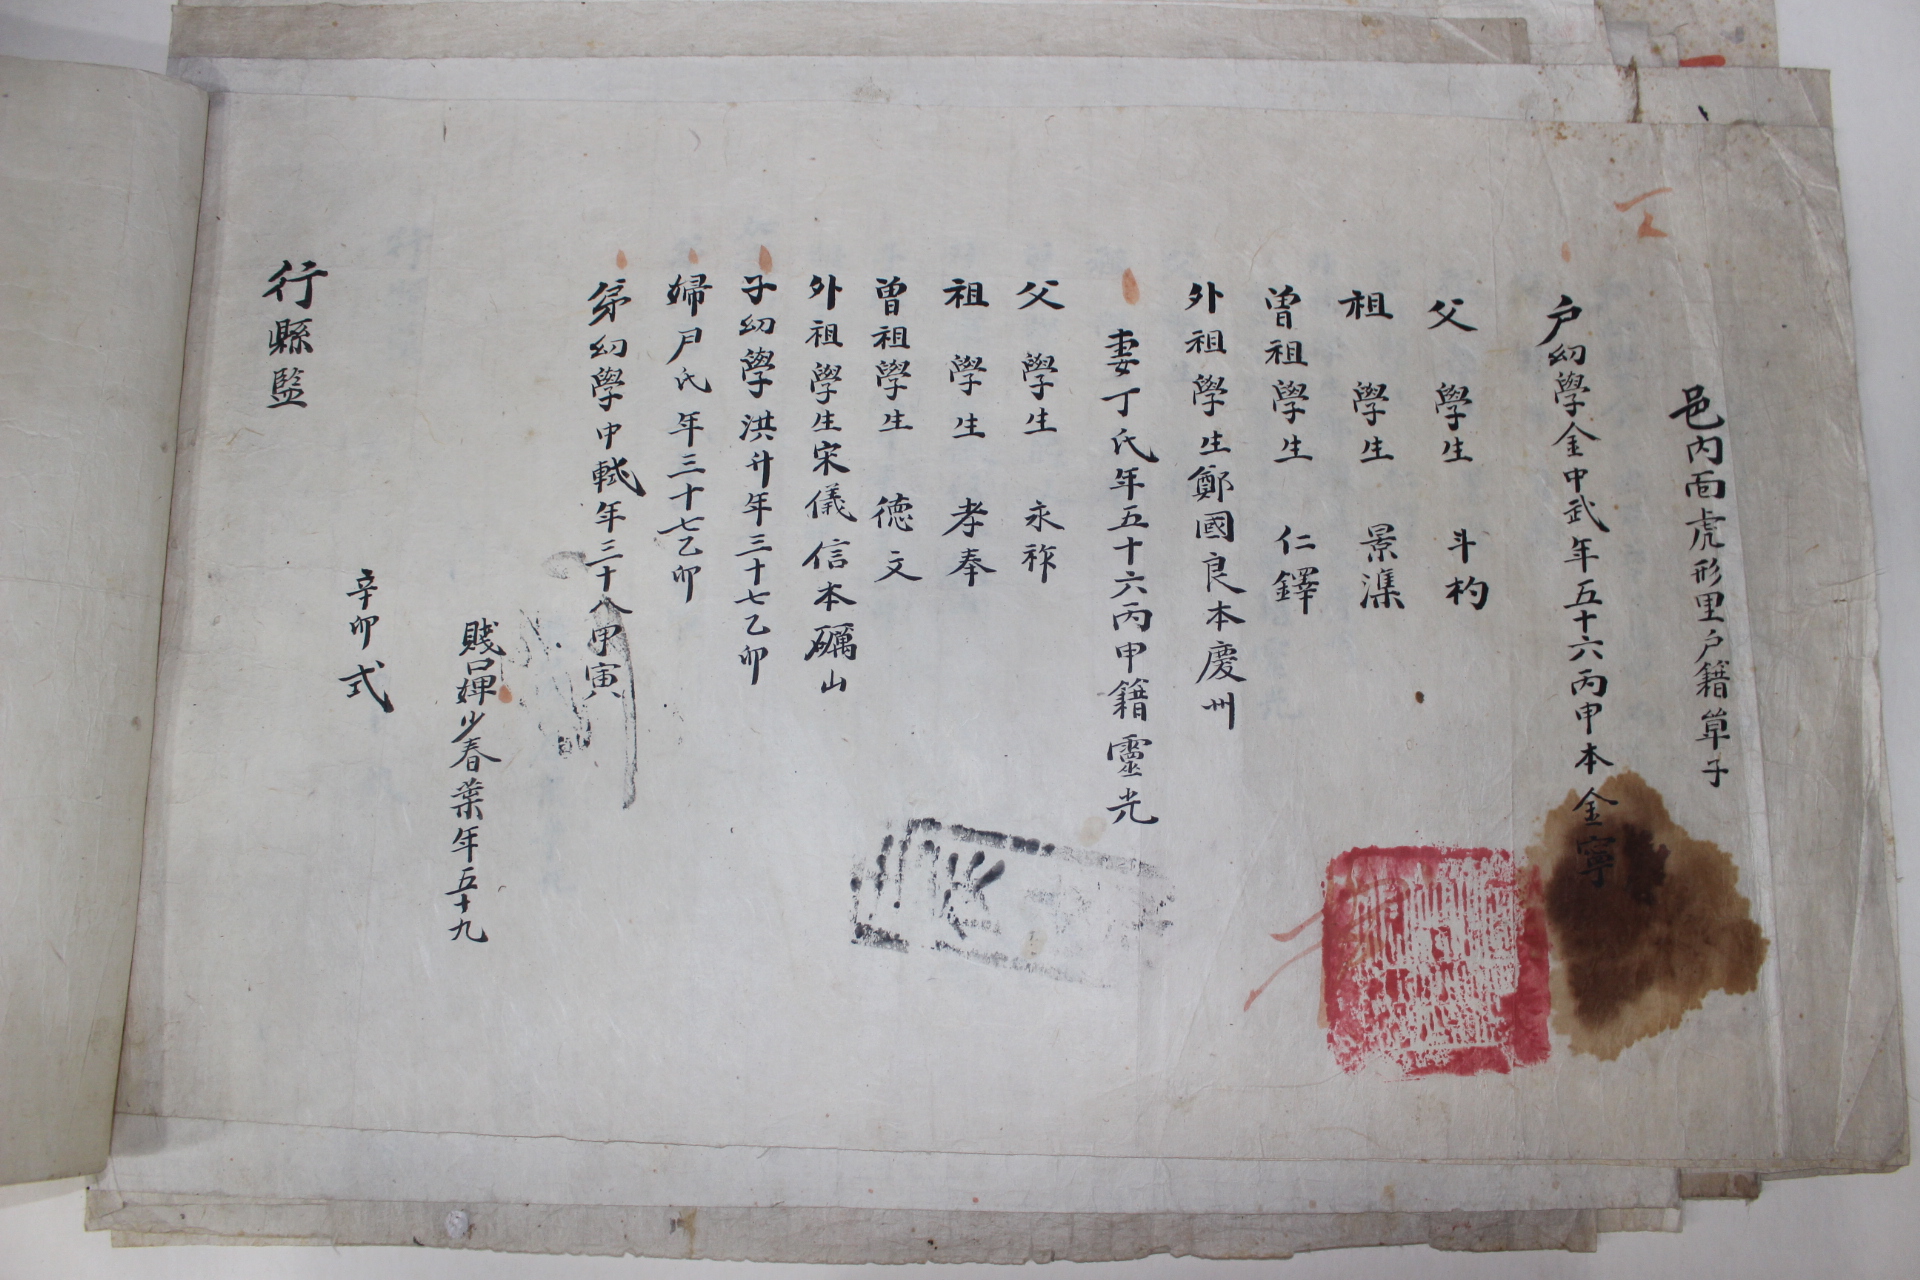 邑內面虎形里戶籍草子
戶幼學金中武年五十六丙申本金寧
父學生斗杓
祖學生景潗
曾祖學生仁鐸
外祖學生鄭國良本慶州
妻丁氏年五十六丙申籍靈光
父學生永祚
祖學生孝奉
曾祖學生德文
外祖學生宋儀信本礪山
子幼學洪升年三十七乙卯
婦尹氏年三十七乙卯
弟幼學中軾年三十八甲寅
賤口婢少春葉年五十九
辛卯式
行縣監